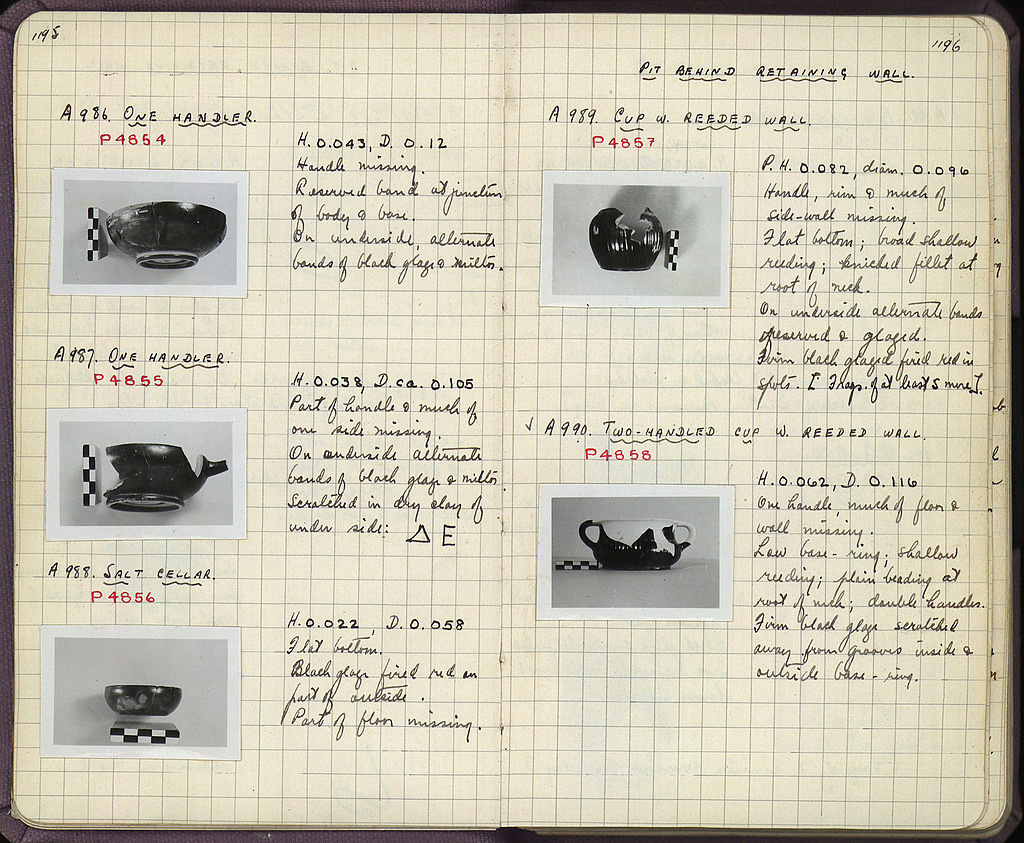 1195
A 986. ONE HANDLER.
P4854
H. 0.043, D. 0.12
Handle missing.
Reserved band at junction
of body & base.
On underside, alternate
bands of black glaze & miltos.
A 987. ONE HANDLER.
P4855
H. 0.038, D. ca. 0.105
Part of handle & much of
one side missing.
On underside alternate
bands of black glaze & miltos
Scratched in dry clay of
under side: Δ Ε
A 988. SALT CELLAR.
P4856
H. 0.022, D. 0.058
Flat bottom.
Black glaze fired red on
part of outside.
Part of floor missing.
1196
PIT BEHIND RETAINING WALL.
A 989. CUP W. REEDED WALL.
P4857
P. H. 0.082, diam. 0.096
Handle, rim & much of
side-wall missing.
Flat bottom; broad shallow
reeding; fillet at
root of neck.
On underside alternate bands
reserved & glazed.
Firm black glazed fired red in
spots. [ Frags. of at least 5 more ].
✓ A 990. TWO-HANDLED CUP W. REEDED WALL.
P4858
H. 0.062, D. 0.116
One handle, much of floor &
wall missing.
Low base-ring; shallow
reeding; plain beading at
root of neck; double handles.
Firm black glaze scratched
away from grooves inside &
outside base-ring.